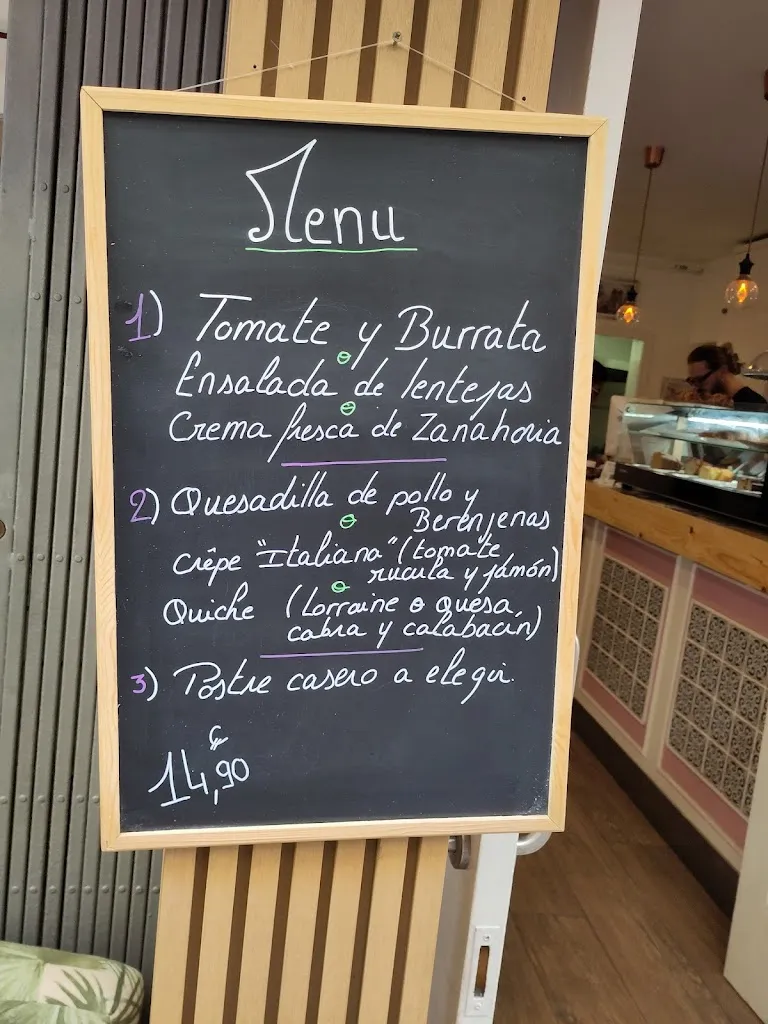 Menu
1) Tomate y Burrata
o
Ensalada de lentejas
o
Crema fresca de Zanahoria
2) Quesadilla de pollo y
Berenjenas
o
crêpe "Italiana" (tomate
rucula y jamón)
o
Quiche (Lorraine o quesa,
cabra y calabacín)
3) Postre casero a elegir.
€
14,90